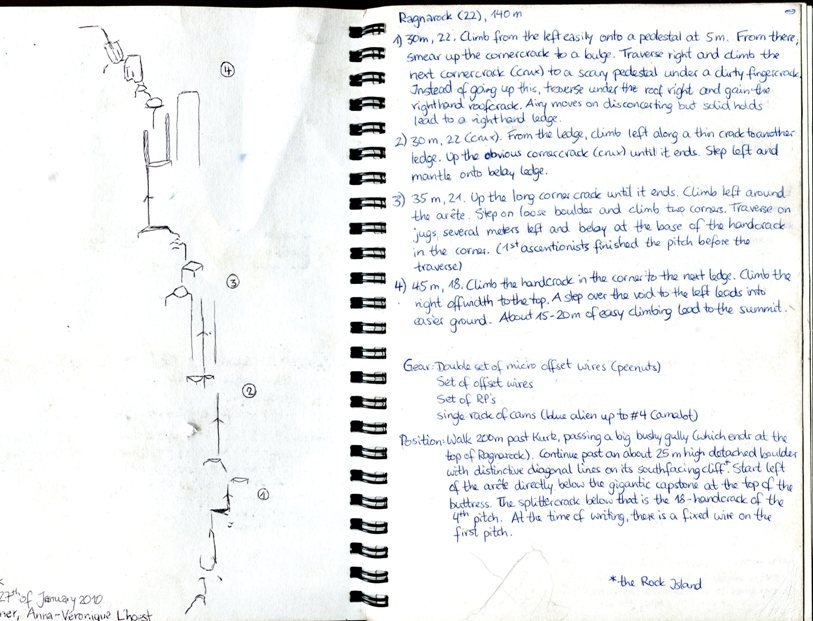 ④
③
②
①
27th of January 2010
ner, Anna-Véronique L'hoest
Ragnarock (22), 140m
1) 30m, 22. Climb from the left easily onto a pedestal at 5m. From there,
smear up the cornercrack to a bulge. Traverse right and climb the
next cornercrack (crux) to a scary pedestal under a dirty fingercrack.
Instead of going up this, traverse under the roof right and gain the
righthand roofcrack. Airy moves on disconcerting but solid holds
lead to a right hand ledge.
2) 30m, 22 (crux). From the ledge, climb left along a thin crack to another
ledge. Up the obvious cornercrack (crux) until it ends. Step left and
mantle onto belay ledge.
3) 35m, 21. Up the long corner crack until it ends. Climb left around
the arête. Step on loose boulder and climb two corners. Traverse on
jugs several meters left and belay at the base of the handcrack
in the corner. (1st ascentionists finished the pitch before the
traverse)
4) 45m, 18. Climb the handcrack in the corner to the next ledge. Climb the
right offwidth to the top. A step over the void to the left leads into
easier ground. About 15-20m of easy climbing lead to the summit.
Gear: Double set of micro offset wires (peenuts)
Set of offset wires
Set of RP's
single rack of cams (blue alien up to #4 Camalot)
Position: Walk 200m past Kurk, passing a big bushy gully (which ends at the
top of Ragnarock). Continue past an about 25m high detached boulder
with distinctive diagonal lines on its southfacing cliff*. Start left
of the arête directly below the gigantic capstone at the top of the
buttress. The splittercrack below that is the 18-handcrack of the
4th pitch. At the time of writing, there is a fixed wire on the
first pitch.
*the Rock Island